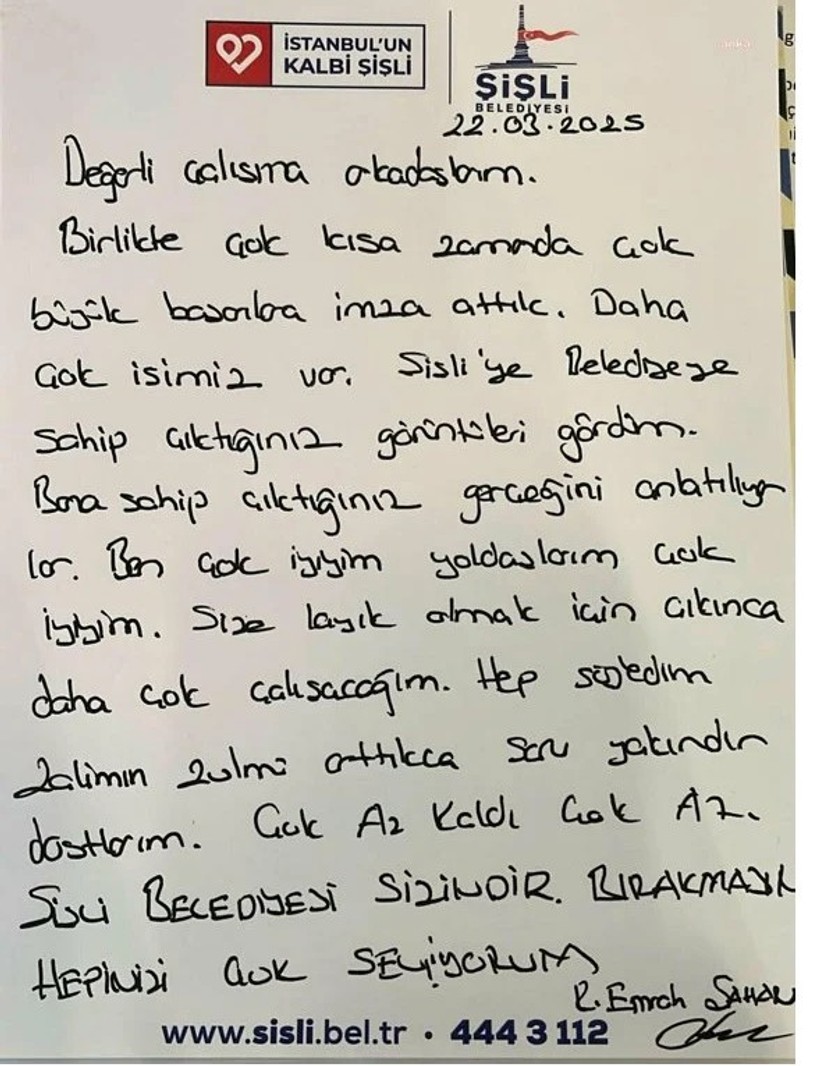 İSTANBUL'UN
KALBİ ŞİŞLİ
ŞİŞLİ
BELEDİYESİ
22.03.2025
Değerli çalışma arkadaşlarım.
Birlikte çok kısa zamanda çok
büyük başarılara imza attık. Daha
çok işimiz var. Şişli'ye Belediyeye
sahip çıktığınız görüntüleri gördüm.
Bana sahip çıktığınız gerçeğini anlatılıyor
lar. Ben çok iyiyim yoldaşlarım çok
iyiyim. Size layık olmak için çıkınca
daha çok çalışacağım. Hep söyledim
Zalimin zulmü arttıkça sonu yakındır
dostlarım. Çok Az Kaldı Çok Az.
ŞİŞLİ BELEDİYESİ SİZİNDİR. BIRAKMAYIN
HEPİNİZİ ÇOK SEVİYORUM
R. Emrah ŞAHAN
www.sisli.bel.tr • 444 3 112